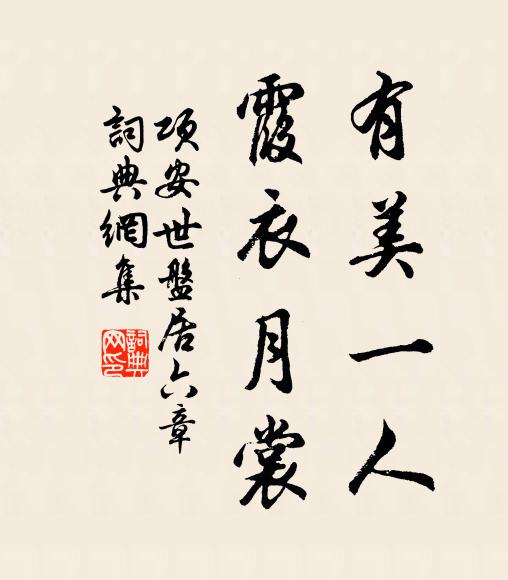 有美一人
霞衣月裳
項安世盤居六章
詞典網集
詞典网印